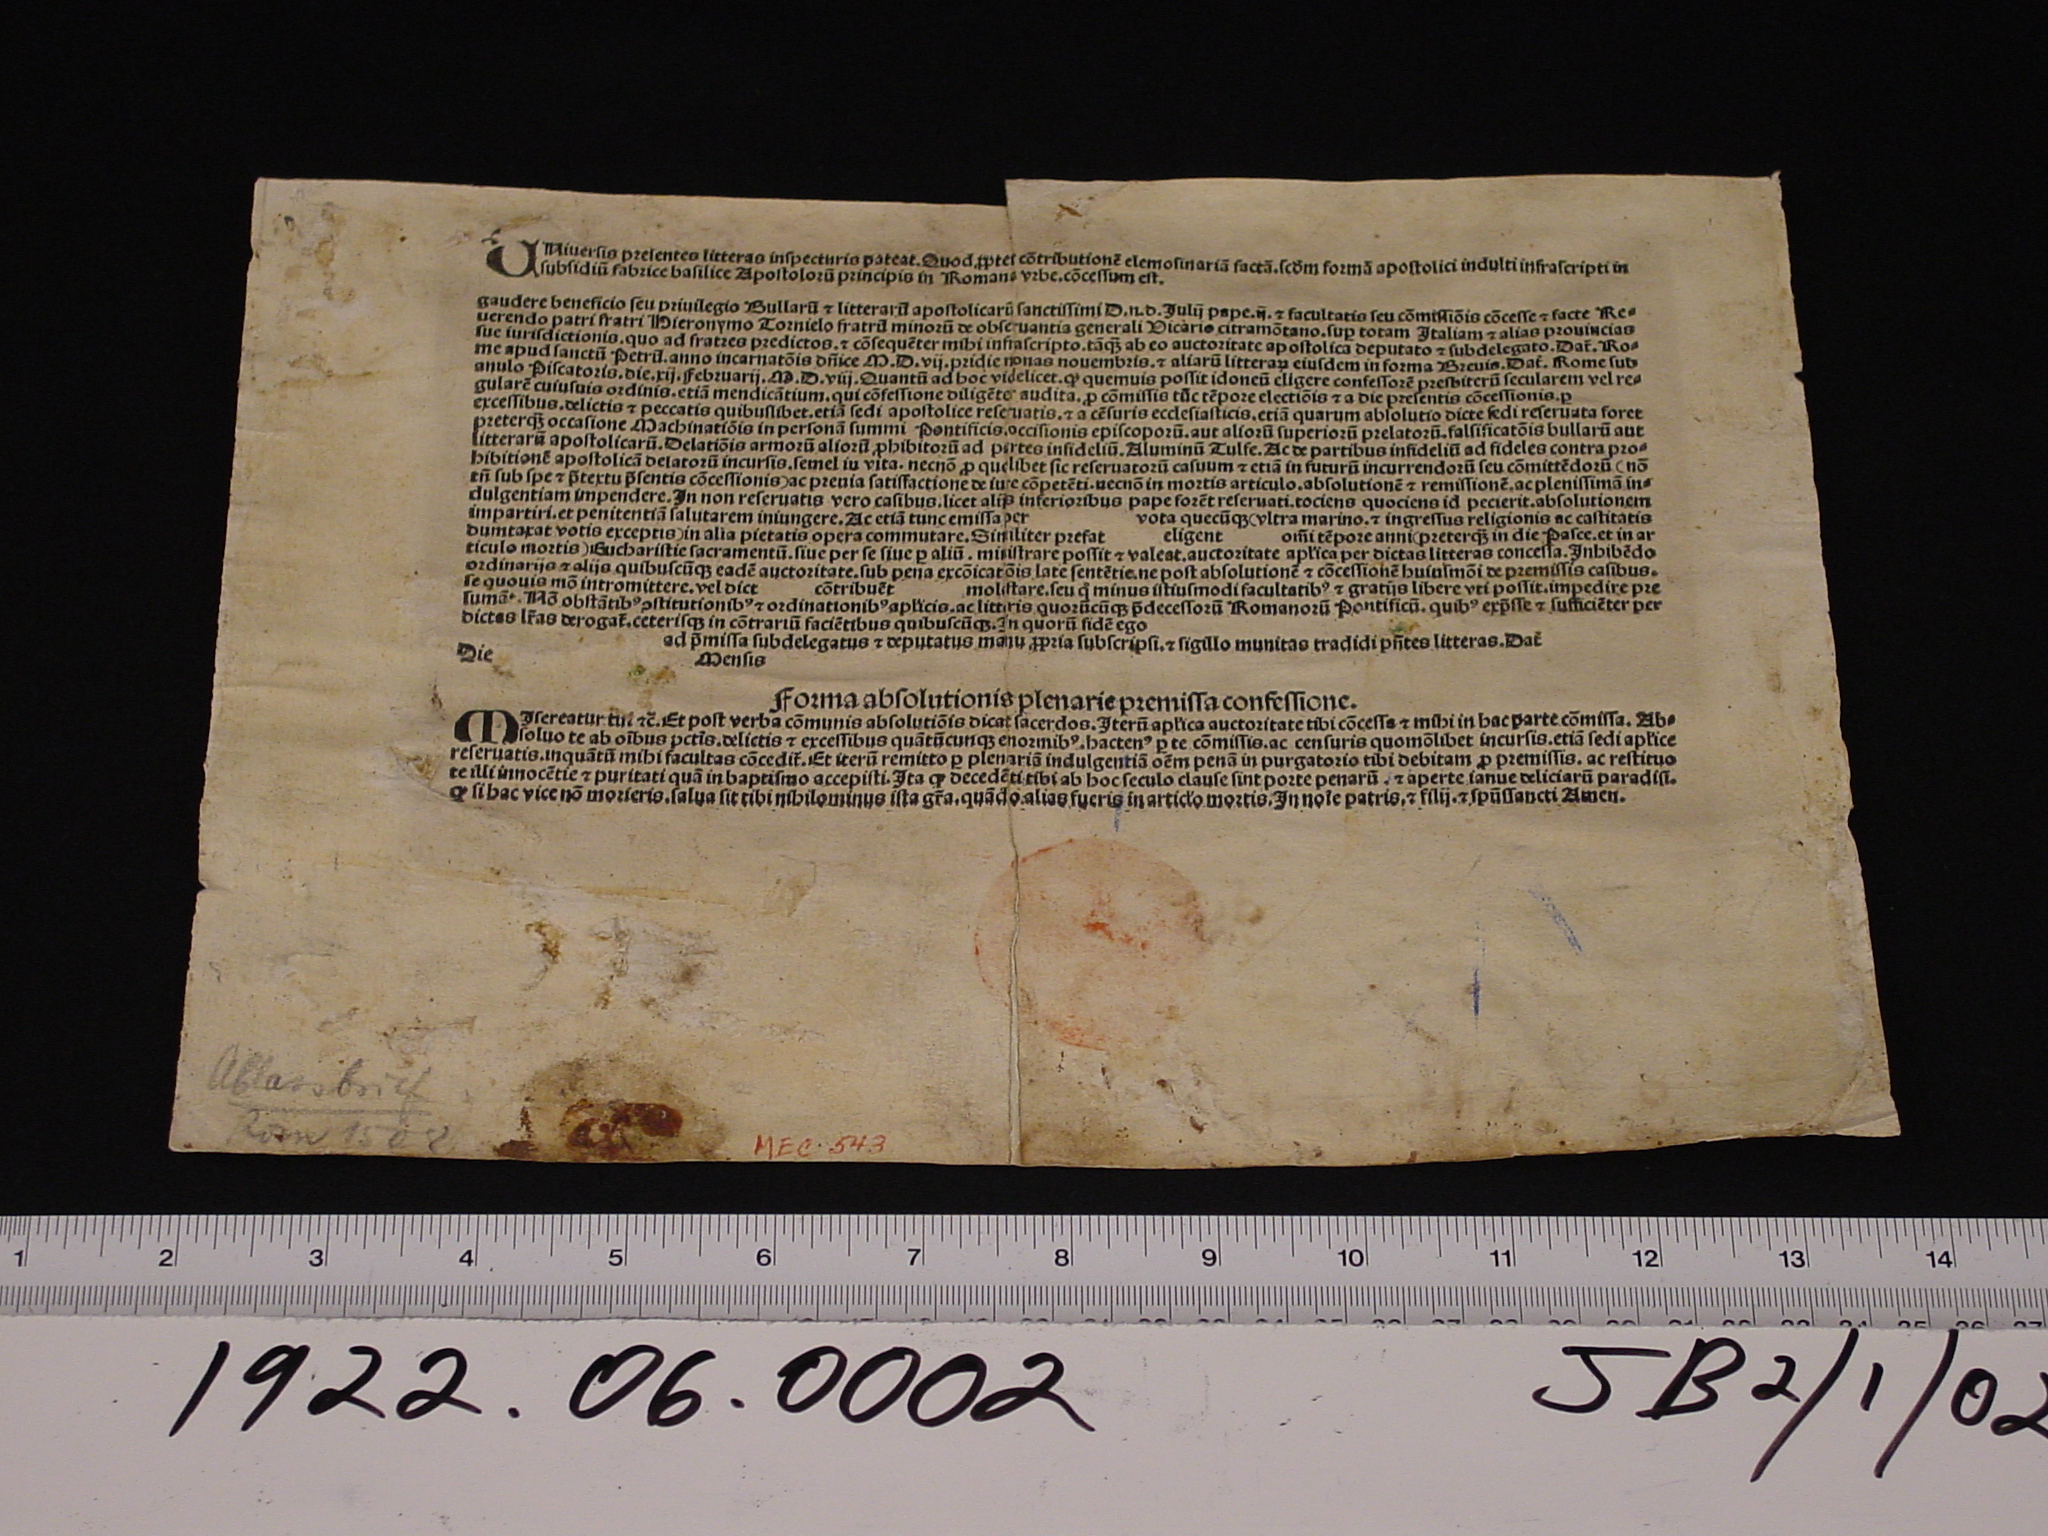 UNiuersis presentes litteras inspecturis pateat. Quod ꝓptei cōtributionē elemosinariā factā. scd̄m formā apostolici indulti infrascripti in
subsidiū fabrice basilice Apostolorū principis in Romana vrbe. cōcessum est.
gaudere beneficio seu priuilegio Bullarū ⁊ litterarū apostolicarū sanctissimi D. n. d. Julij pape. ij. ⁊ facultatis seu cōmissiōis cōcesse ⁊ facte Re-
uerendo patri fratri Hieronymo Tornielo fratrū minorū de obseruantia generali Vicario citramōtano. sup totam Italiam ⁊ alias prouincias
sue iurisdictionis. quo ad fratres predictos. ⁊ cōsequēter mihi infrascripto. tāꝙ̄ ab eo auctoritate apostolica deputato ⁊ subdelegato. Dat̄. Ro-
me apud sanctū Petrū. anno incarnatōis dn̄ice M. D. vij. pridie nonas nouembris. ⁊ aliarū litteraꝝ eiusdem in forma Breuis. Dat̄. Rome sub
anulo Piscatoris. die. xij. Februarij. M. D. viij. Quantū ad hoc videlicet. ꝙ quemuis possit idoneū eligere confessorē presbiterū secularem vel re-
gularē cuiusuis ordinis. etiā mendicātium. qui cōfessione diligēte audita. ꝓ cōmissis tūc tēpore electiōis ⁊ a die presentis cōcessionis. ꝑ
excessibus. delictis ⁊ peccatis quibuslibet. etiā sedi apostolice reseruatis. ⁊ a cēsuris ecclesiasticis. etiā quarum absolutio dicte sedi reseruata foret
preterꝙ̄ occasione Machinatiōis in personā summi Pontificis. occisionis episcoporū. aut aliorū superiorū prelatorū. falsificatōis bullarū aut
litterarū apostolicarū. Delatiōis armorū aliorū ꝓhibitorū ad partes infideliū. Aluminū Tulfe. Ac de partibus infideliū ad fideles contra pro-
hibitionē apostolicā delatorū incursis. semel in vita. necnō ꝓ quolibet sic reseruatorū casuum ⁊ etiā in futurū incurrendorū seu cōmittēdorū (nō
tn̄ sub spe ⁊ p̄textu p̄sentis cōcessionis) ac preuia satisfactione de iure cōpetēti. necnō in mortis articulo. absolutionē ⁊ remissionē. ac plenissimā in-
dulgentiam impendere. In non reseruatis vero casibus. licet alijs inferioribus pape forēt reseruati. tociens quociens id pecierit. absolutionem
impartiri. et penitentiā salutarem iniungere. Ac etiā tunc emissa per vota quecūꝙ (vltra marino. ⁊ ingressus religionis ac castitatis
dumtaxat votis exceptis) in alia pietatis opera commutare. Similiter prefat eligent om̄i tēpore anni (preterꝙ̄ in die Pasce. et in ar
ticulo mortis) Eucharistie sacramentū. siue per se siue ꝑ aliū. ministrare possit ⁊ valeat. auctoritate apl̄ica per dictas litteras concessa. Inhibēdo
ordinarijs ⁊ alijs quibuscūꝙ eadē auctoritate. sub pena excōicatōis late sentētie. ne post absolutionē ⁊ cōcessionē huiusmōi de premissis casibus.
se quouis mō intromittere. vel dict cōtribuēt molestare. seu q̄ minus istiusmodi facultatibꝰ ⁊ gratijs libere vti possit. impedire pre
sumāt. Nō obstātibꝰ ↄstitutionibꝰ ⁊ ordinationibꝰ apl̄icis. ac litteris quorūcūꝙ p̄decessorū Romanorū Pontificū. quibꝰ exp̄sse ⁊ sufficiēter per
dictas lr̄as derogat̄. ceterisꝙ in cōtrariū faciētibus quibuscūꝙ. In quorū fidē ego
ad p̄missa subdelegatus ⁊ deputatus manu ꝓpria subscripsi. ⁊ sigillo munitas tradidi pn̄tes litteras. Dat̄
Die Mensis
Forma absolutionis plenarie premissa confessione.
MIsereatur tui. ⁊c̄. Et post verba cōmunis absolutiōis dicat sacerdos. Iterū apl̄ica auctoritate tibi cōcessa ⁊ mihi in hac parte cōmissa. Ab-
soluo te ab oībus pctīs. delictis ⁊ excessibus quātūcunꝙ enormibꝰ. hactenꝰ ꝑ te cōmissis. ac censuris quomōlibet incursis. etiā sedi apl̄ice
reseruatis. inquātū mihi facultas cōcedit̄. Et iterū remitto ꝑ plenariā indulgentiā oēm penā in purgatorio tibi debitam ꝓ premissis. ac restituo
te illi innocētie ⁊ puritati quā in baptismo accepisti. Ita ꝙ decedēti tibi ab hoc seculo clause sint porte penarū. ⁊ aperte ianue deliciarū paradisi.
ꝙ si hac vice nō morieris. salua sit tibi nihilominus ista gr̄a. quādo alias fueris in articl̄o mortis. In noīe patris. ⁊ filij. ⁊ spūssancti Amen.
Ablassbrief
Rom 1508
MEC. 543
1 2 3 4 5 6 7 8 9 10 11 12 13 14
1922.06.0002 JB 2/1/02